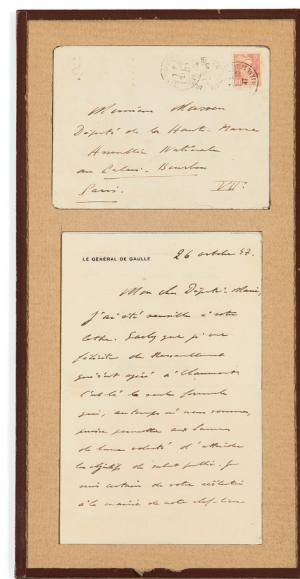 Monsieur Masson
Député de la Haute-Marne
Assemblée Nationale
au Palais-Bourbon
Paris. VII.
LE GÉNÉRAL DE GAULLE
26 octobre 47.
Mon cher Député-Maire,
J'ai été sensible à votre
lettre. Sachez que je me
félicite du Rassemblement
qui s'est opéré à Chaumont.
C'est là la seule formule
qui, au temps où nous sommes,
puisse permettre aux hommes
de bonne volonté d'atteindre
les objectifs de salut public. Je
suis certain de votre réélection
à la mairie de votre chef-lieu